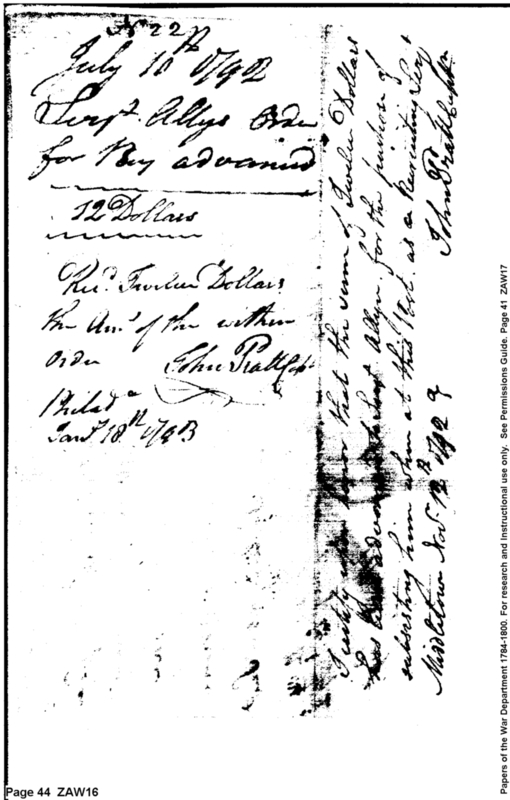 No 22
July 10th 1792
Sergt. Allyns Order
for Pay advanced
12 Dollars
Recd. Twelve Dollars
the Amt. of the within
Order John Pratt Capt
Philada
Jany 18th 1793
I certify upon honor that the sum of Twelve Dollars
has been advanced to Sergt Allyn for the purpose of
subsisting him when at this as a Recruiting Sergt
Middletown Novr 12th 1792
John Pratt Capt
Papers of the War Department 1784-1800. For research and Instructional use only. See Permissions Guide. Page 41 ZAW17
Page 44 ZAW16